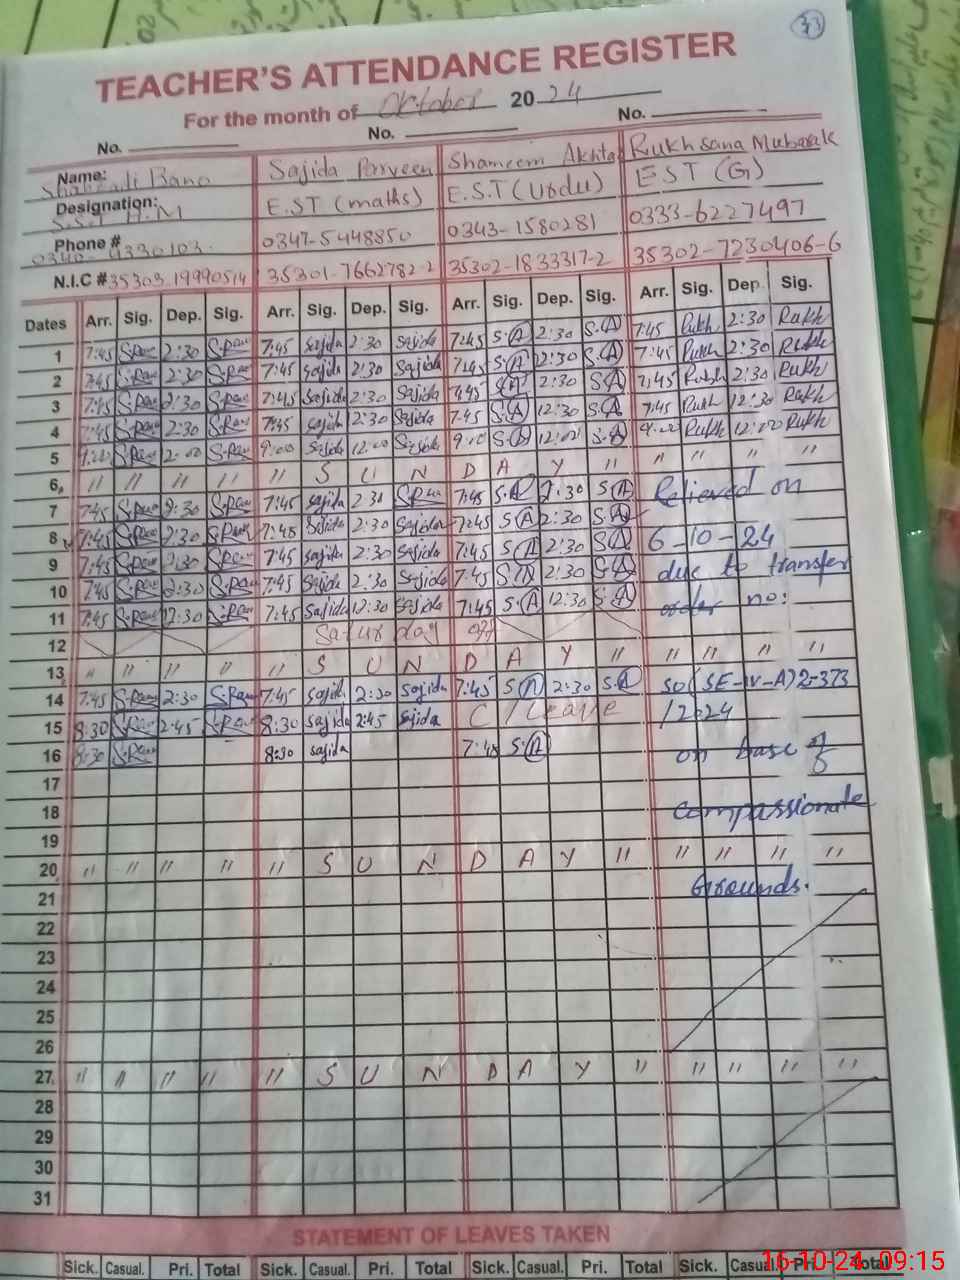 33
TEACHER'S ATTENDANCE REGISTER
For the month of October 2024
No. No. No.
Name: Bano Sajida Parveen Shameem Akhtar Rukhsana Mubarak
Designation: S.S.T H.M E.ST (maths) E.S.T (Urdu) EST (G)
Phone # 0347-5448850 0343-1580281 0333-6227497
N.I.C # 35303-19990514 35301-7662782-2 35302-1833317-2 35302-7230406-6
Dates Arr. Sig. Dep. Sig. Arr. Sig. Dep. Sig. Arr. Sig. Dep. Sig. Arr. Sig. Dep. Sig.
1 7:45 S.Rau 2:30 S.Rau 7:45 sajida 2:30 sajida 7:45 S.A 2:30 S.A 7:45 Rukh 2:30 Rukh
2 7:45 S.Rau 2:30 S.Rau 7:45 sajida 2:30 Sajida 7:45 S.A 2:30 S.A 7:45 Rukh 2:30 Rukh
3 7:45 S.Rau 2:30 S.Rau 7:45 sajida 2:30 Sajida 7:45 S.A 2:30 S.A 7:45 Rukh 2:30 Rukh
4 7:45 S.Rau 2:30 S.Rau 7:45 sajida 2:30 Sajida 7:45 S.A 12:30 S.A 7:45 Rukh 12:30 Rukh
5 9:00 S.Rau 2:00 S.Rau 9:00 Sajida 12:00 Sajida 9:00 S.A 12:00 S.A 9:00 Rukh 12:00 Rukh
6 " " " " " S U N D A Y " " " " "
7 7:45 S.Rau 2:30 S.Rau 7:45 sajida 2:30 S.Rau 7:45 S.A 2:30 S.A Relieved on
8 7:45 S.Rau 2:30 S.Rau 7:45 Sajida 2:30 Sajida 7:45 S.A 2:30 S.A 6-10-24
9 7:45 S.Rau 2:30 S.Rau 7:45 sajida 2:30 Sajida 7:45 S.A 2:30 S.A due to transfer
10 7:45 S.Rau 2:30 S.Rau 7:45 Sajida 2:30 Sajida 7:45 S.A 2:30 S.A order no:
11 7:45 S.Rau 12:30 S.Rau 7:45 Sajida 12:30 Sajida 7:45 S.A 12:30 S.A
12 Saturday off
13 " " " " " S U N D A Y " " " " "
14 7:45 S.Rau 2:30 S.Rau 7:45 sajida 2:30 Sajida 7:45 S.A 2:30 S.A SO(SE-IV-A)2-373
15 8:30 S.Rau 2:45 S.Rau 8:30 sajida 2:45 sajida C/leave /2024
16 8:30 S.Rau 8:30 sajida 7:45 S.A on base of
17
18 compassionate
19
20 " " " " " S U N D A Y " " " " "
21 Grounds.
22
23
24
25
26
27 " " " " " S U N D A Y " " " " "
28
29
30
31
STATEMENT OF LEAVES TAKEN
Sick. Casual. Pri. Total Sick. Casual. Pri. Total Sick. Casual. Pri. Total Sick. Casual. Pri. Total
16-10-24 09:15